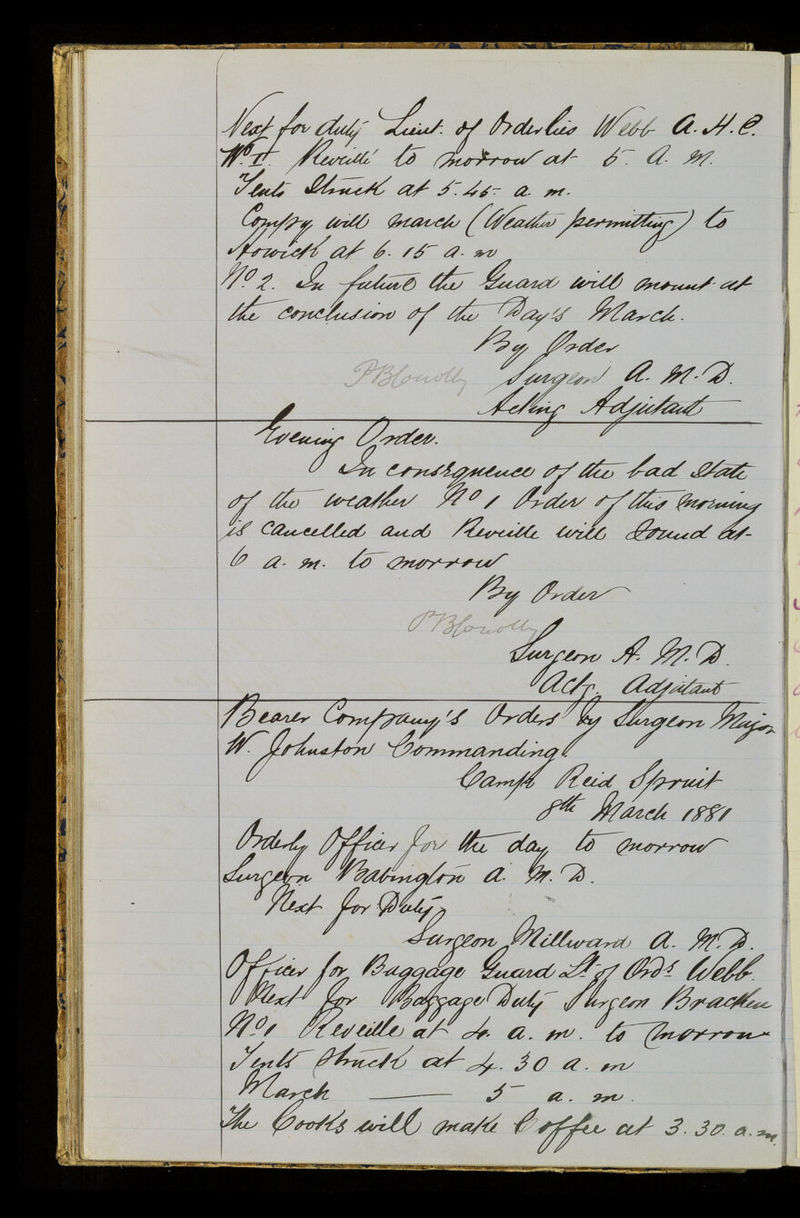 Next for duty Lieut. of Orderlies Webb A. H. C.
No. I. Reveillé to morrow at 5. A. M.
Tents Struck at 5.45. a. m.
Compy will march (Weather permitting) to
Howick at 6.15 a. m
No 2. In future the Guard will mount at
the conclusion of the Day's March.
By Order
PBConolly Surgeon A. M. D.
Acting Adjutant
Evening Order.
In consequence of the bad State
of the weather No 1 Order of this morning
is cancelled and Reveille will sound at
6 a. m. to morrow
By Order
PBConolly
Surgeon A. M. D.
Actg. Adjutant
Bearer Company's Orders by Surgeon Major
W. Johnston Commanding.
Camp Reid Spruit
8th March 1881
Orderly Officer for the day to morrow
Surgeon Babington A. M. D.
Next for Duty
Surgeon Millward A. M. D.
Officer for Baggage Guard Lt of Ords Webb
Next for Baggage Duty Surgeon Bracken
No 1 Reveille at 4. a. m. to morrow
Tents Struck at 4.30 a. m
March — 5 a. m.
The Cooks will make Coffee at 3.30. a. m.